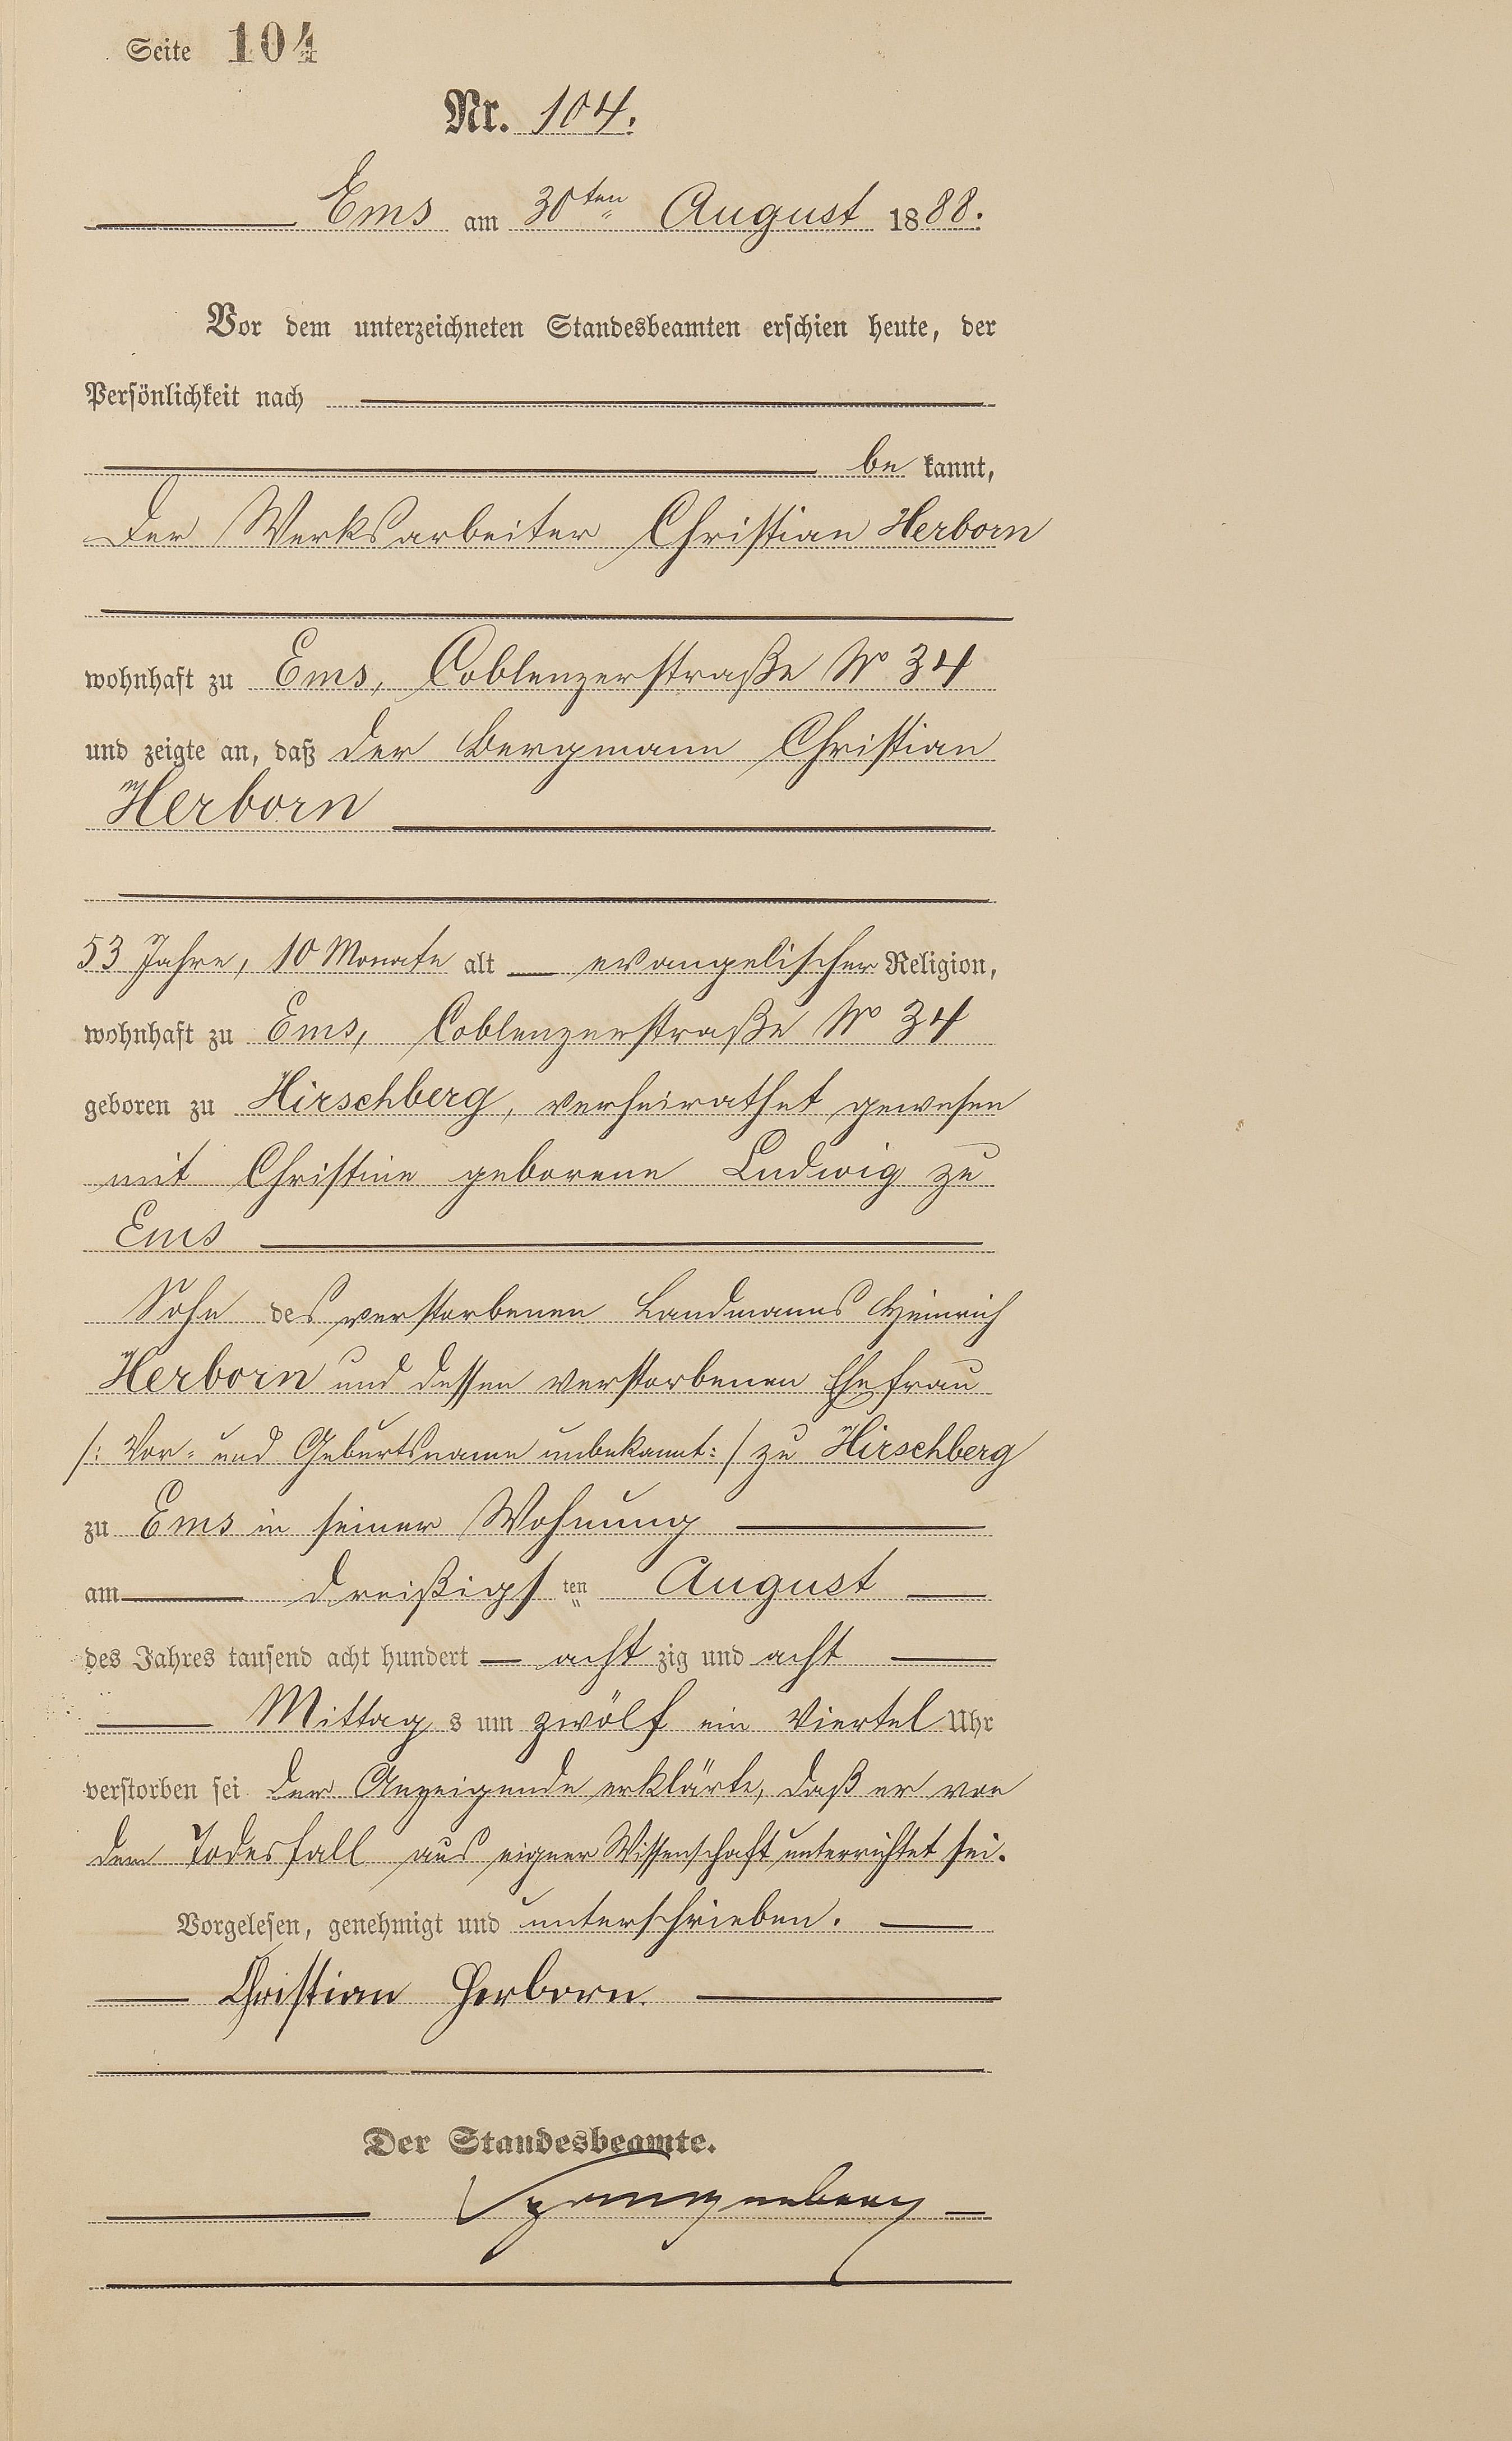 Seite 104
Nr. 104.
Ems am 30ten August 1888.
Vor dem unterzeichneten Standesbeamten erschien heute, der
Persönlichkeit nach
be kannt,
der Werksarbeiter Christian Herborn
wohnhaft zu Ems, Coblenzerstraße No 34
und zeigte an, daß der Bergmann Christian
Herborn
53 Jahre, 10 Monate alt evangelischer Religion,
wohnhaft zu Ems, Coblenzerstraße No 34
geboren zu Hirschberg, verheirathet gewesen
mit Christine geborene Ludwig zu
Ems
Sohn des verstorbenen Landmanns Heinrich
Herborn und dessen verstorbenen Ehefrau
/: Vor- und Geburtsname unbekannt :/ zu Hirschberg
zu Ems in seiner Wohnung
am dreißigsten August
des Jahres tausend acht hundert acht zig und acht
Mittag s um zwölf ein Viertel Uhr
verstorben sei Der Anzeigende erklärte, daß er von
dem Todesfall aus eigner Wissenschaft unterrichtet sei.
Vorgelesen, genehmigt und unterschrieben.
Christian Herborn.
Der Standesbeamte.
Spangenberg